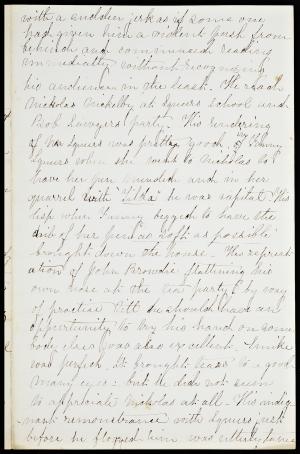 with a sudden jerk as if some one
had given him a violent push from
behind and commenced reading
immediately without recognizing
his audience in the least. He read
Nicholas Nickelby at Squeers School and
Bob Sawyers party. His rendering
of Mr Squeers was pretty good, of Fanny
Squeers when she went to Nicholas to
have her pen mended and in her
quarrel with 'Tilda' he was capital. His
lisp when Fanny begged to have the
nib of her pen as soft as possible
brought down the house. His represent-
ation of John Browdie flattening his
own nose at the tea party by way
of practice till he should have an
opportunity to try his hand on some
body else's was also excellent. Smike
was perfect. It brought tears to a good
many eyes: but he did not seem
to appreciate Nicholas at all. His indig-
nant remonstrance with Squeers just
before he flogged him was utterly tame